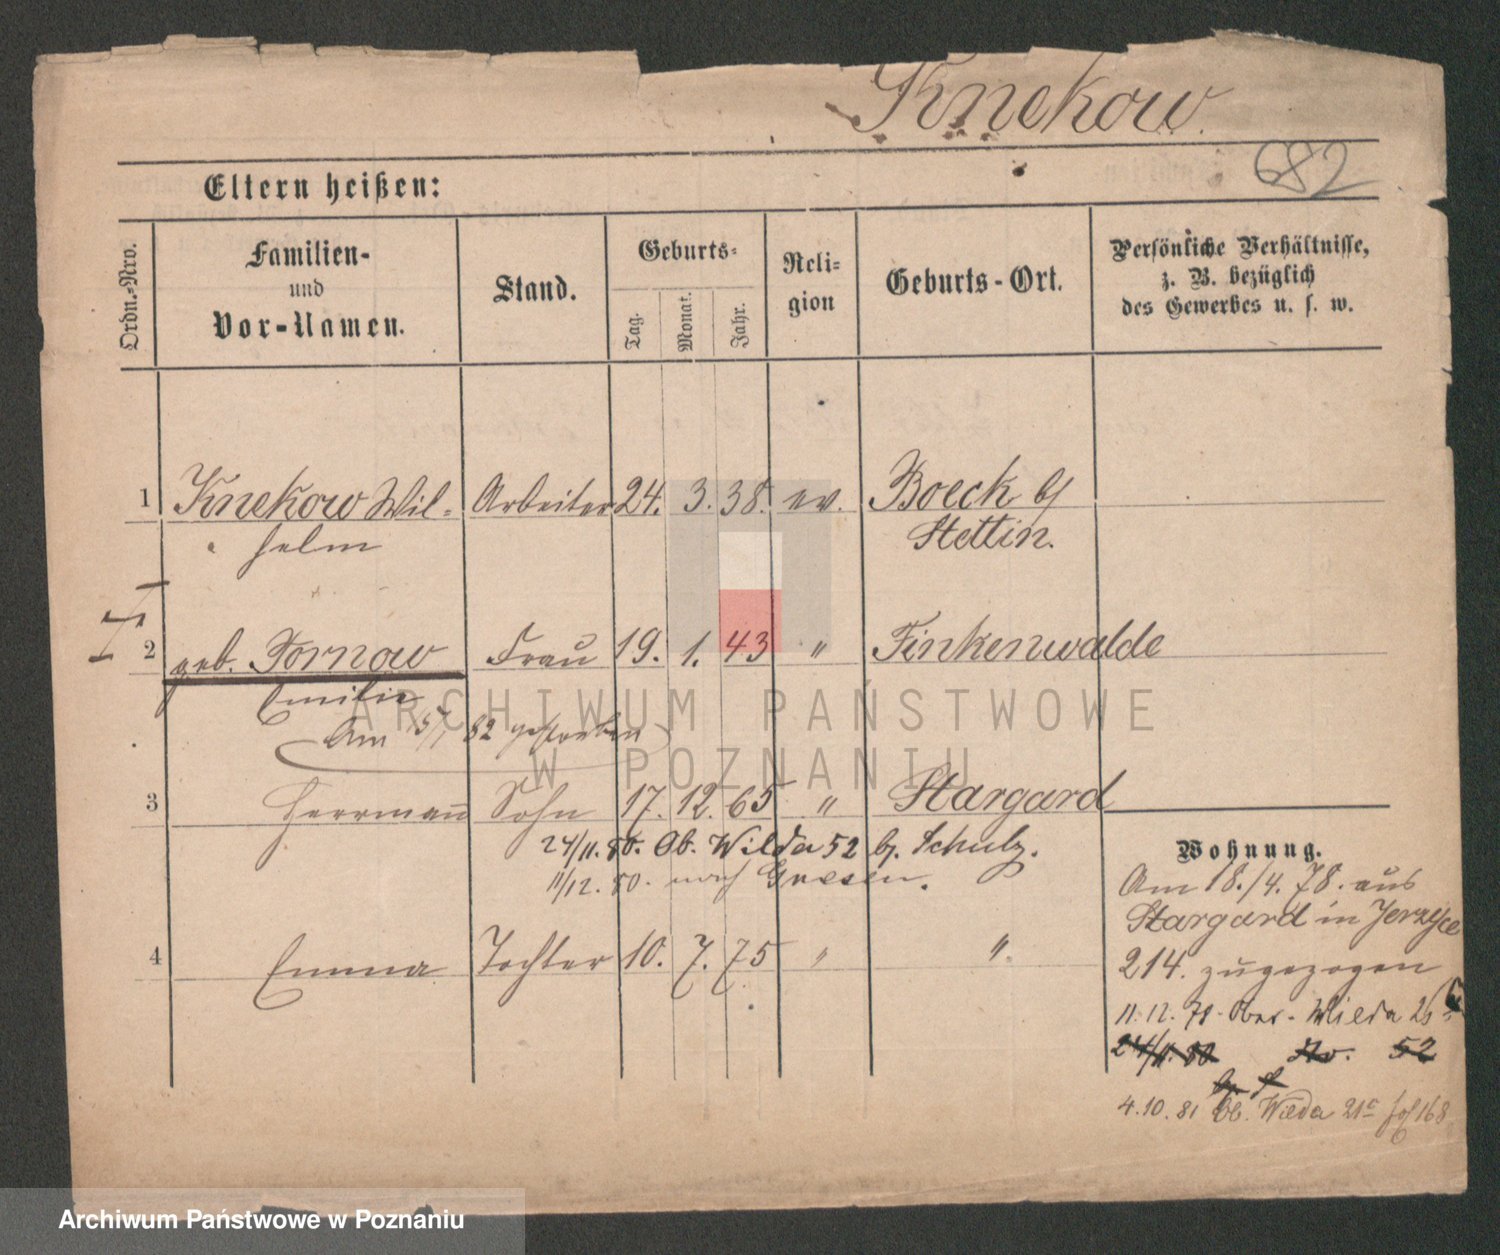 Knekow.
682
Eltern heißen:
Ordn.-Nro.
Familien-
und
Vor-Namen.
Stand.
Geburts-
Tag.
Monat.
Jahr.
Reli-
gion
Geburts-Ort.
Persönliche Verhältnisse,
z. B. bezüglich
des Gewerbes u. s. w.
1 Knekow Wil- Arbeiter 24. 3. 38. ev. Boeck b/
helm Stettin.
2 geb. Pornow Frau 19. 1. 43 " Finkenwalde
Emilie
Am 15/1 82 gestorben
3 Herrmann Sohn 17. 12. 65 " Stargard
24/11. 80. Ob. Wilda 52 b. Schulz.
11/12. 80. nach Gnesen.
4 Emma Tochter 10. 7. 75 " ".
Wohnung.
Am 18./4. 78. aus
Stargard in Jerzyce
214. zugezogen
11.12. 78. Ober-Wilda 25
24/11. 80 No. 52
4.10. 81 Ob. Wilda 21c fol 168
ARCHIWUM PAŃSTWOWE
W POZNANIU
Archiwum Państwowe w Poznaniu